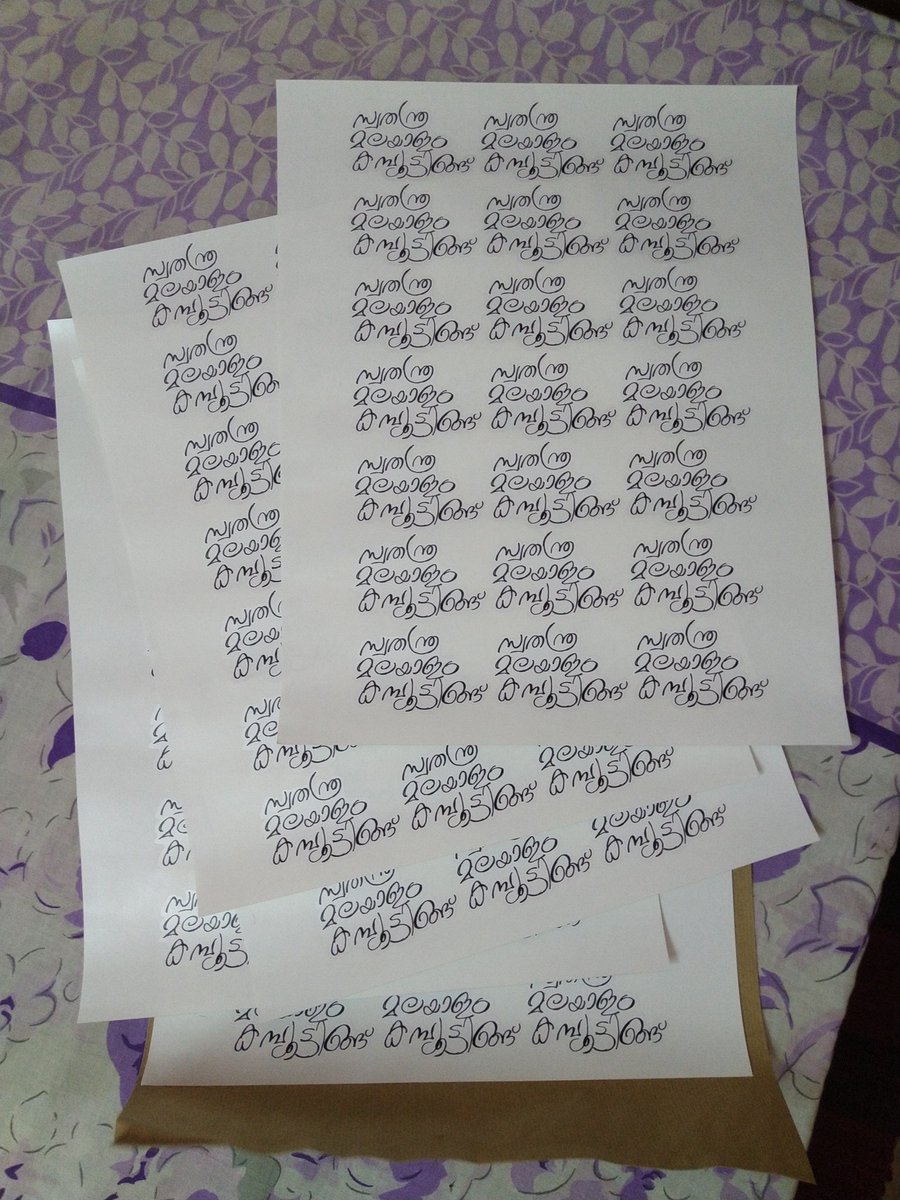 സ്വതന്ത്ര സ്വതന്ത്ര സ്വതന്ത്ര
മലയാളം മലയാളം മലയാളം
കമ്പ്യൂട്ടിങ്ങ് കമ്പ്യൂട്ടിങ്ങ് കമ്പ്യൂട്ടിങ്ങ്
സ്വതന്ത്ര സ്വതന്ത്ര സ്വതന്ത്ര
മലയാളം മലയാളം മലയാളം
കമ്പ്യൂട്ടിങ്ങ് കമ്പ്യൂട്ടിങ്ങ് കമ്പ്യൂട്ടിങ്ങ്
സ്വതന്ത്ര സ്വതന്ത്ര സ്വതന്ത്ര
മലയാളം മലയാളം മലയാളം
കമ്പ്യൂട്ടിങ്ങ് കമ്പ്യൂട്ടിങ്ങ് കമ്പ്യൂട്ടിങ്ങ്
സ്വതന്ത്ര സ്വതന്ത്ര സ്വതന്ത്ര
മലയാളം മലയാളം മലയാളം
കമ്പ്യൂട്ടിങ്ങ് കമ്പ്യൂട്ടിങ്ങ് കമ്പ്യൂട്ടിങ്ങ്
സ്വതന്ത്ര സ്വതന്ത്ര സ്വതന്ത്ര
മലയാളം മലയാളം മലയാളം
കമ്പ്യൂട്ടിങ്ങ് കമ്പ്യൂട്ടിങ്ങ് കമ്പ്യൂട്ടിങ്ങ്
സ്വതന്ത്ര സ്വതന്ത്ര സ്വതന്ത്ര
മലയാളം മലയാളം മലയാളം
കമ്പ്യൂട്ടിങ്ങ് കമ്പ്യൂട്ടിങ്ങ് കമ്പ്യൂട്ടിങ്ങ്
സ്വതന്ത്ര സ്വതന്ത്ര സ്വതന്ത്ര
മലയാളം മലയാളം മലയാളം
കമ്പ്യൂട്ടിങ്ങ് കമ്പ്യൂട്ടിങ്ങ് കമ്പ്യൂട്ടിങ്ങ്
സ്വതന്ത്ര
മലയാളം
കമ്പ്യൂട്ടിങ്ങ്
സ്വതന്ത്ര
മലയാളം
സ്വതന്ത്ര
മലയാളം
സ്വതന്ത്ര
സ്വതന്ത്ര സ്വതന്ത്ര
മലയാളം മലയാളം മലയാളം
കമ്പ്യൂട്ടിങ്ങ് കമ്പ്യൂട്ടിങ്ങ് കമ്പ്യൂട്ടിങ്ങ്
സ്വതന്ത്ര
മലയാളം മലയാളം മലയാളം
കമ്പ്യൂട്ടിങ്ങ് കമ്പ്യൂട്ടിങ്ങ് കമ്പ്യൂട്ടിങ്ങ്
മലയാളം മലയാളം
കമ്പ്യൂട്ടിങ്ങ് കമ്പ്യൂട്ടിങ്ങ് കമ്പ്യൂട്ടിങ്ങ്